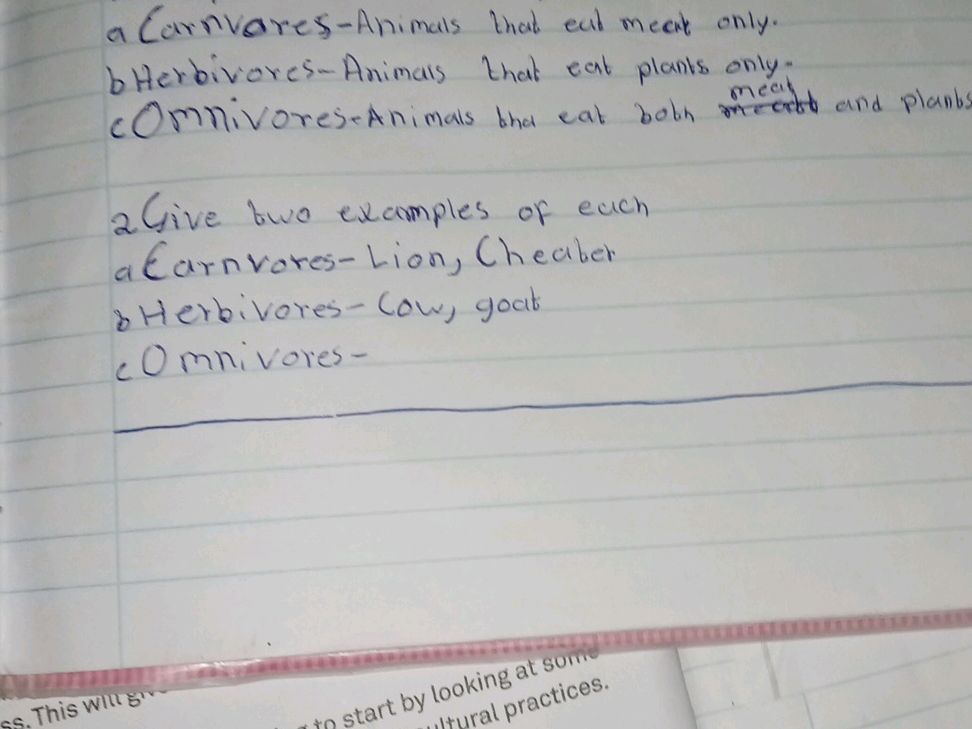 a Carnvores-Animals that eat meat only.
b Herbivores-Animals that eat plants only.
meat
c Omnivores-Animals tha eat both and plants
2 Give two examples of each
a Carnvores-Lion, Cheater
b Herbivores-Cow, goat
c Omnivores-
ss. This will
to start by looking at some
ultural practices.